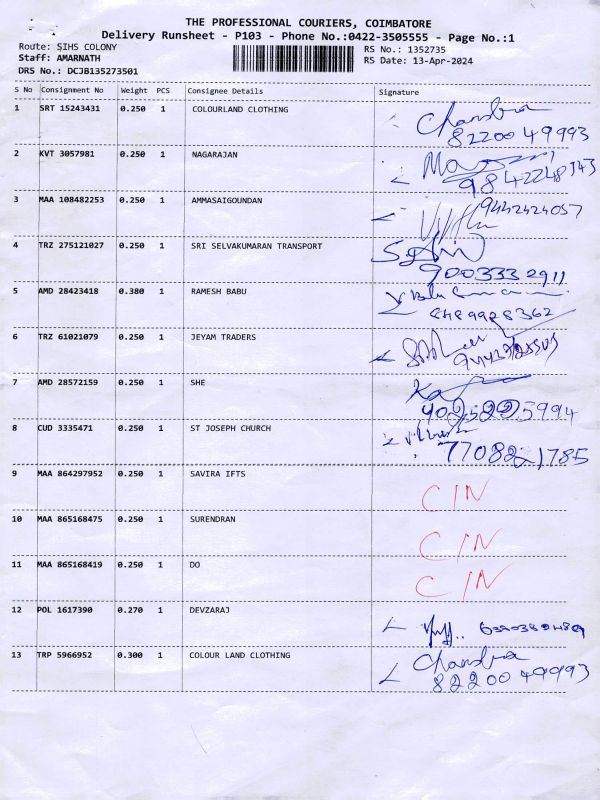 THE PROFESSIONAL COURIERS, COIMBATORE
Delivery Runsheet - P103 - Phone No.:0422-3505555 - Page No.:1
Route: SIHS COLONY
RS No.: 1352735
Staff: AMARNATH
RS Date: 13-Apr-2024
DRS No.: DCJB135273501
S No Consignment No Weight PCS Consignee Details Signature
1 SRT 15243431 0.250 1 COLOURLAND CLOTHING Chandra
82200 49993
2 KVT 3057981 0.250 1 NAGARAJAN
9842248143
3 MAA 108482253 0.250 1 AMMASAIGOUNDAN 9442424057
4 TRZ 275121027 0.250 1 SRI SELVAKUMARAN TRANSPORT
9003332911
5 AMD 28423418 0.380 1 RAMESH BABU
8489928362
6 TRZ 61021079 0.250 1 JEYAM TRADERS
7 AMD 28572159 0.250 1 SHE
8 CUD 3335471 0.250 1 ST JOSEPH CHURCH
7708221785
9 MAA 864297952 0.250 1 SAVIRA IFTS C/N
10 MAA 865168475 0.250 1 SURENDRAN C/N
11 MAA 865168419 0.250 1 DO C/N
12 POL 1617390 0.270 1 DEVZARAJ
13 TRP 5966952 0.300 1 COLOUR LAND CLOTHING Chandra
82200 49993